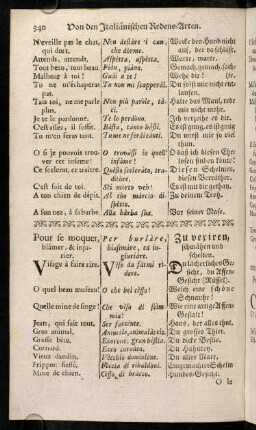 340 Von den Italiänischen Redens-Arten.
N'eveille pas le chat, qui dort.
Attends, attends.
Tout beau, tout beau.
Malheur à toi!
Tu ne m'échaperas pas.
Tais toi, ne me parle plus.
Je te le pardonne.
C'est assés, il suffit.
Tu m'en feras tant.
O si je pouvois trouver cet infame!
Ce scelerat, ce traitre.
C'est fait de toi.
A ton chien de dépit.
A son nez, à sa barbe.
Non destare i can, che dorme.
Aspetta, aspetta,
Piàn, piàno.
Guài a te!
Tu non mi scapperài.
Non più paròle, tàci.
Te lo perdòno.
Basta, tanto bèsti.
Tu me ne farài tante.
O trovàssi io quell' infàme!
Questo scelerato, traditore.
Stà mèrto vèh!
Al tùo màrcio dispètto.
Alla bàrba sùa.
Wecke den Hund nicht auf, der da schläft.
Warte, warte.
Gemach, gemach, sachte.
Wehe dir!
Du sollst mir nicht entkommen.
Halte das Maul, rede mir nicht mehr.
Ich verzeihe es dir.
Es ist genug, es ist genug
Du wirst mir so viel thun.
O daß ich diesen Ehrlosen finden könte!
Diesen Schelmen, diesen Verräther.
Es ist mit dir gethan.
Zu deinem Trotz.
Vor seiner Nase.
Pour se moquer, blâmer, & injurier.
Visage à faire rire.
O quel beau museau!
Quelle mine de singe!
Jean, qui fait tout.
Gros animal.
Grosse bête.
Cornard.
Vieux daudin.
Frippon fieffé.
Mine de chien.
Per burlàre, biasimàre, et ingiuriàre.
Viso da fàrmi ridere.
O che bel ceffo!
Che viso di scimmia!
Ser faccente.
Animàle, animalàccio.
Ecco cornùto.
Vècchio dondolòne.
Fèccia di ribaldòni.
Ceffo di bracco.
Zu vexiren, schmähen und schelten.
Du lächerliches Gesicht, du Affen-Gesicht (Rüssel).
Welch eine schöne Schnautze!
Wie eine artige Affen-Gestalt!
Hans, der alles thut.
Du grosses Thier.
Du dicke Bestie.
Du Hahnrey.
Du alter Narr.
Hunds-Gesicht.
O le